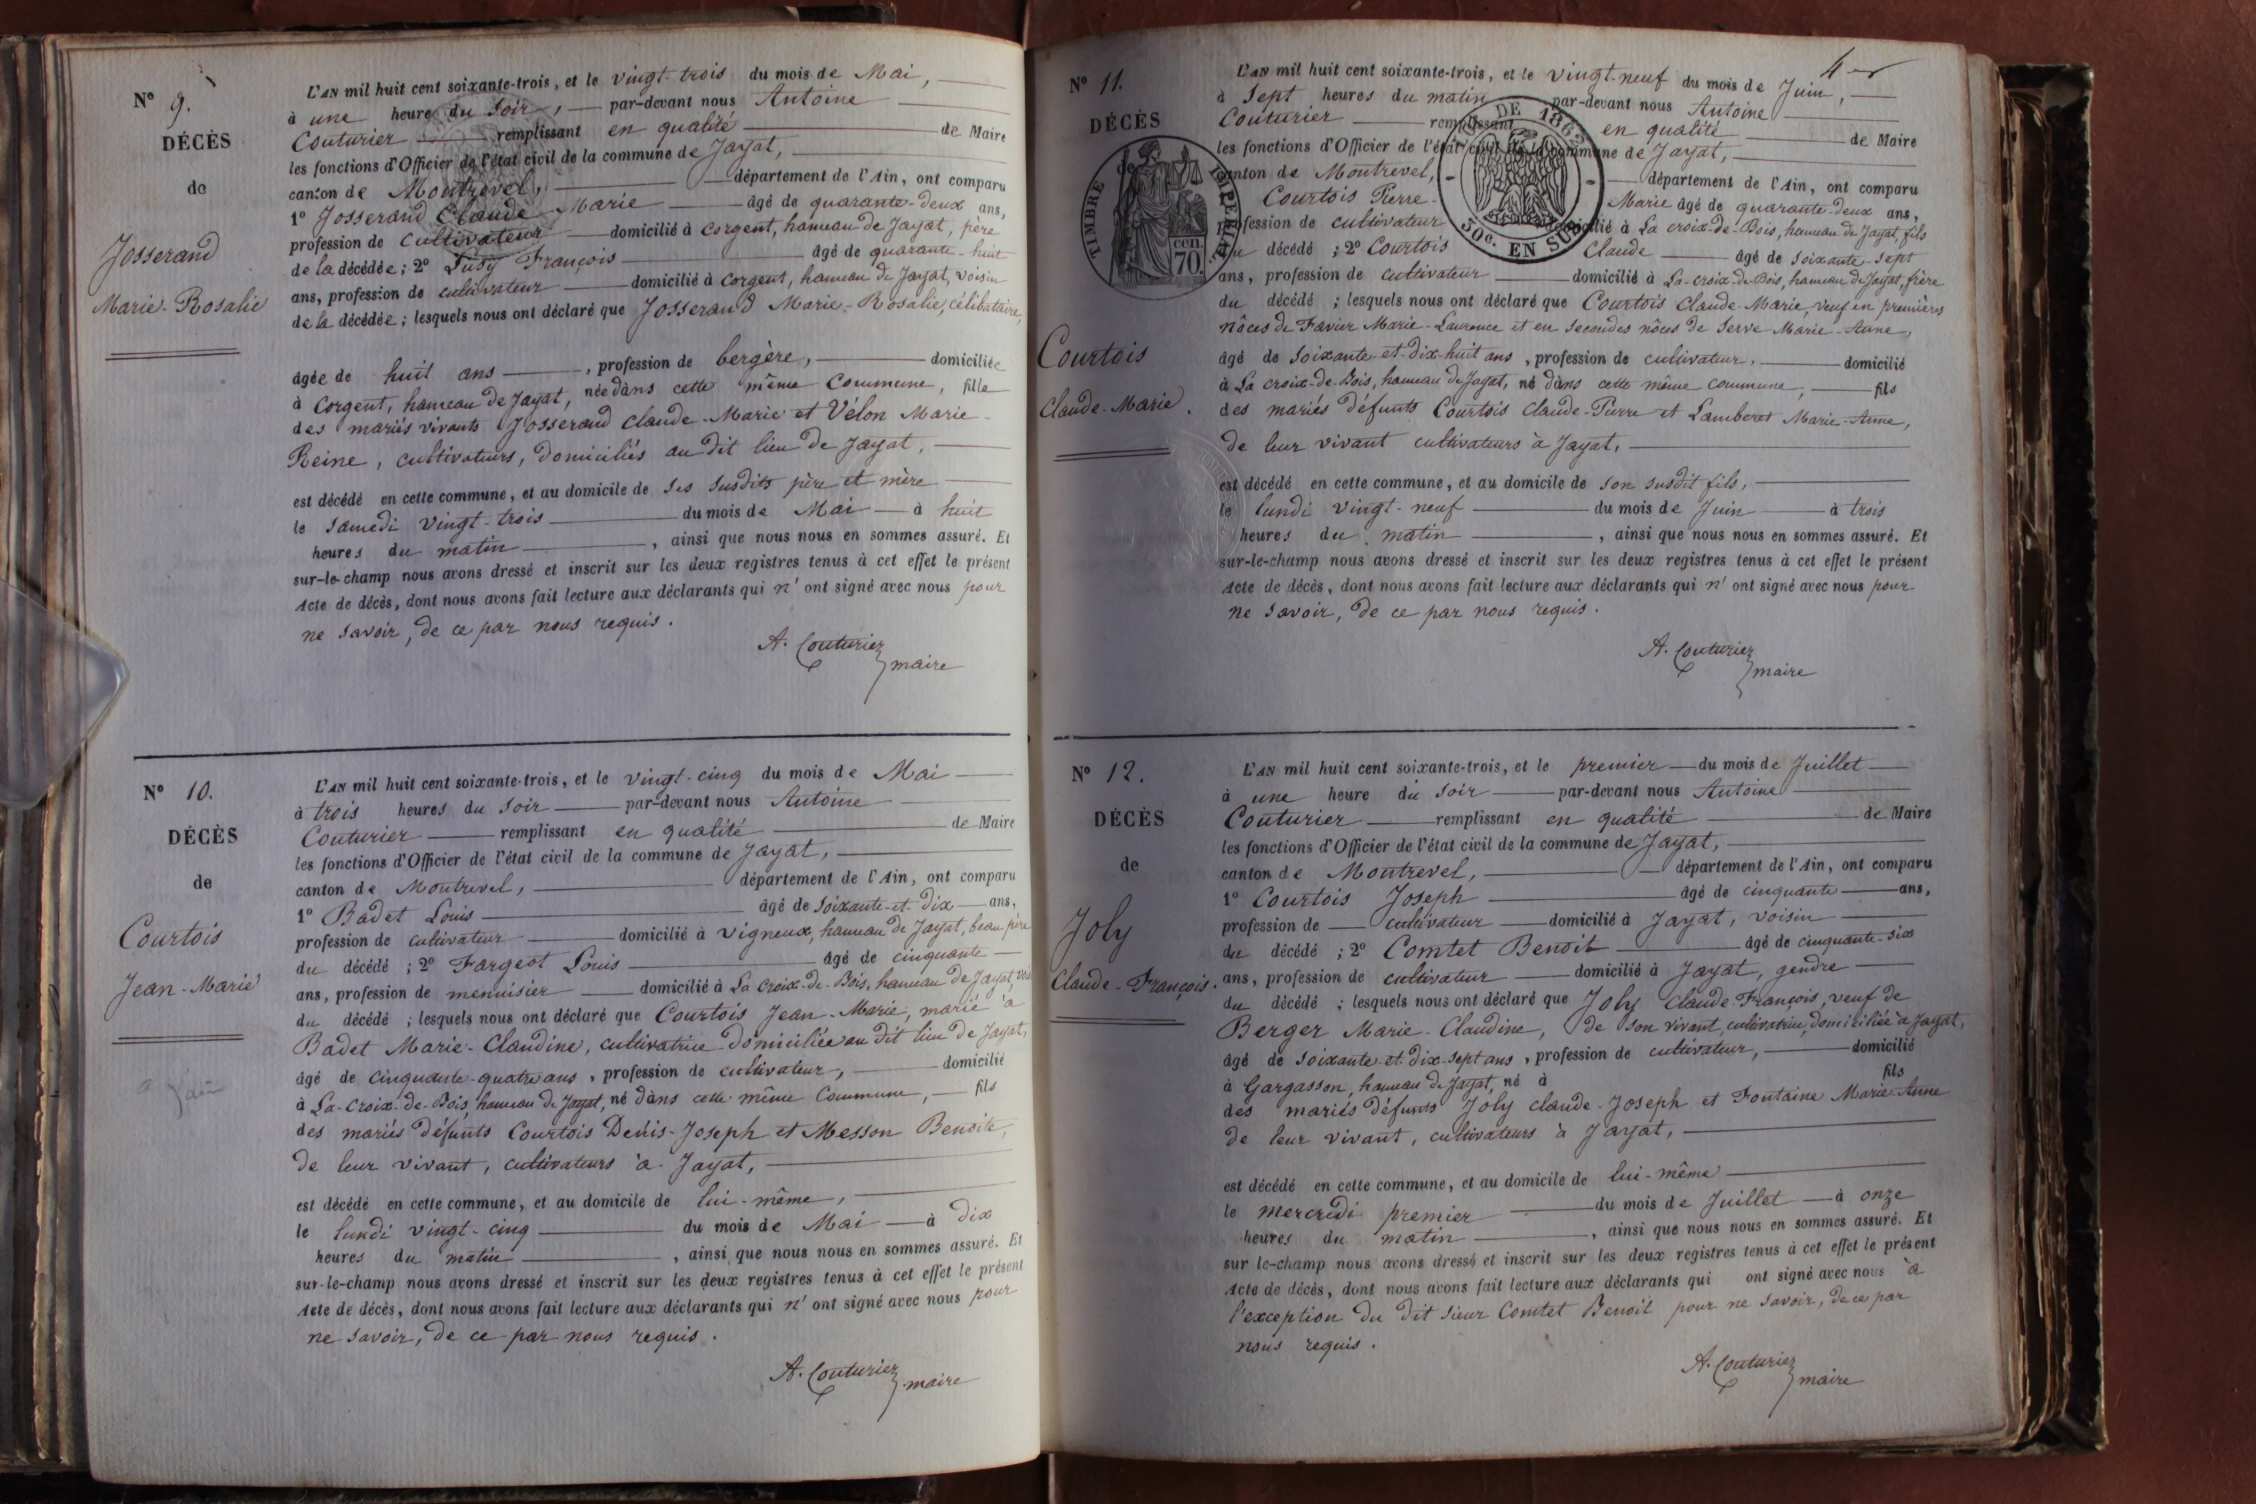 N° 9.
DÉCÈS
de
Josserand
Marie-Rosalie
L'AN mil huit cent soixante-trois, et le vingt-trois du mois de Mai,
à une heure du soir, par-devant nous Antoine
Couturier remplissant en qualité de Maire
les fonctions d'Officier de l'état civil de la commune de Jayat,
canton de Montrevel, département de l'Ain, ont comparu
1° Josserand Claude Marie âgé de quarante-deux ans,
profession de cultivateur domicilié à Corgent, hameau de Jayat, père
de la décédée ; 2° François âgé de quarante-huit
ans, profession de cultivateur domicilié à Corgent, hameau de Jayat, voisin
de la décédée ; lesquels nous ont déclaré que Josserand Marie-Rosalie, célibataire,
âgée de huit ans, profession de bergère, domiciliée
à Corgent, hameau de Jayat, née dans cette même commune, fille
des mariés vivants Josserand Claude-Marie et Vélon Marie-
Reine, cultivateurs, domiciliés au dit lieu de Jayat,
est décédé en cette commune, et au domicile de ses susdits père et mère
le samedi vingt-trois du mois de Mai à huit
heures du matin, ainsi que nous nous en sommes assuré. Et
sur-le-champ nous avons dressé et inscrit sur les deux registres tenus à cet effet le présent
Acte de décès, dont nous avons fait lecture aux déclarants qui n'ont signé avec nous pour
ne savoir, de ce par nous requis.
A. Couturier
maire
N° 10.
DÉCÈS
de
Courtois
Jean-Marie
L'AN mil huit cent soixante-trois, et le vingt-cinq du mois de Mai
à trois heures du soir par-devant nous Antoine
Couturier remplissant en qualité de Maire
les fonctions d'Officier de l'état civil de la commune de Jayat,
canton de Montrevel, département de l'Ain, ont comparu
1° Badet Louis âgé de soixante-et-dix ans,
profession de cultivateur domicilié à Vigneux, hameau de Jayat, beau-père
du décédé ; 2° Fargeot Louis âgé de cinquante
ans, profession de menuisier domicilié à La Croix-de-Bois, hameau de Jayat,
du décédé ; lesquels nous ont déclaré que Courtois Jean-Marie, marié à
Badet Marie-Claudine, cultivatrice domiciliée au dit lieu de Jayat,
âgé de cinquante-quatre ans, profession de cultivateur, domicilié
à La-Croix-de-Bois, hameau de Jayat, né dans cette même commune, fils
des mariés défunts Courtois Denis-Joseph et Messon Benoite,
de leur vivant, cultivateurs à Jayat,
est décédé en cette commune, et au domicile de lui-même,
le lundi vingt-cinq du mois de Mai à dix
heures du matin, ainsi que nous nous en sommes assuré. Et
sur-le-champ nous avons dressé et inscrit sur les deux registres tenus à cet effet le présent
Acte de décès, dont nous avons fait lecture aux déclarants qui n'ont signé avec nous pour
ne savoir, de ce par nous requis.
A. Couturier
maire
4
N° 11.
DÉCÈS
de
TIMBRE IMPERIAL
70 cen.
DE 1862
50c. EN SUS
Courtois
Claude-Marie.
L'AN mil huit cent soixante-trois, et le vingt-neuf du mois de Juin,
à sept heures du matin par-devant nous Antoine
Couturier remplissant en qualité de Maire
les fonctions d'Officier de l'état civil de la commune de Jayat,
canton de Montrevel, département de l'Ain, ont comparu
Courtois Pierre-Marie âgé de quarante-deux ans,
profession de cultivateur domicilié à La Croix-de-Bois, hameau de Jayat, fils
du décédé ; 2° Courtois Claude âgé de soixante-sept
ans, profession de cultivateur domicilié à La-Croix-de-Bois, hameau de Jayat, frère
du décédé ; lesquels nous ont déclaré que Courtois Claude-Marie, veuf en premières
nôces de Favier Marie-Laurence et en secondes nôces de Serve Marie-Anne,
âgé de soixante-et-dix-huit ans, profession de cultivateur, domicilié
à La Croix-de-Bois, hameau de Jayat, né dans cette même commune, fils
des mariés défunts Courtois Claude-Pierre et Lamberet Marie-Anne,
de leur vivant cultivateurs à Jayat,
est décédé en cette commune, et au domicile de son susdit fils,
le lundi vingt-neuf du mois de Juin à trois
heures du matin, ainsi que nous nous en sommes assuré. Et
sur-le-champ nous avons dressé et inscrit sur les deux registres tenus à cet effet le présent
Acte de décès, dont nous avons fait lecture aux déclarants qui n'ont signé avec nous pour
ne savoir, de ce par nous requis.
A. Couturier
maire
N° 12.
DÉCÈS
de
Joly
Claude-François.
L'AN mil huit cent soixante-trois, et le premier du mois de Juillet
à une heure du soir par-devant nous Antoine
Couturier remplissant en qualité de Maire
les fonctions d'Officier de l'état civil de la commune de Jayat,
canton de Montrevel, département de l'Ain, ont comparu
1° Courtois Joseph âgé de cinquante ans,
profession de cultivateur domicilié à Jayat, voisin
du décédé ; 2° Comtet Benoit âgé de cinquante-six
ans, profession de cultivateur domicilié à Jayat, gendre
du décédé ; lesquels nous ont déclaré que Joly Claude-François, veuf de
Berger Marie-Claudine, de son vivant, cultivatrice, domiciliée à Jayat,
âgé de soixante-et-dix-sept ans, profession de cultivateur, domicilié
à Gargasson, hameau de Jayat, né à fils
des mariés défunts Joly Claude-Joseph et Fontaine Marie-Anne
de leur vivant, cultivateurs à Jayat,
est décédé en cette commune, et au domicile de lui-même
le mercredi premier du mois de Juillet à onze
heures du matin, ainsi que nous nous en sommes assuré. Et
sur le-champ nous avons dressé et inscrit sur les deux registres tenus à cet effet le présent
Acte de décès, dont nous avons fait lecture aux déclarants qui ont signé avec nous à
l'exception du dit sieur Comtet Benoit pour ne savoir, de ce par
nous requis.
A. Couturier
maire